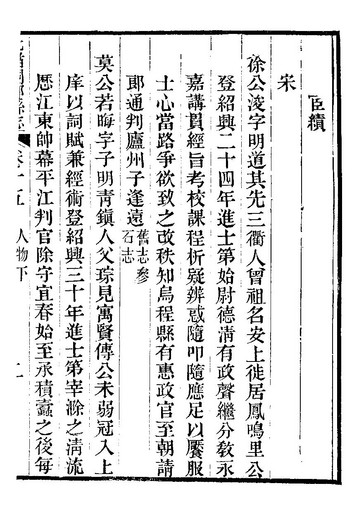 臣績
宋
徐公浚字明道其先三衢人曾祖名安上徙居鳳鳴里公
登紹興二十四年進士第始尉德清有政聲繼分敎永
嘉講貫經旨考校課程析疑辨惑隨叩隨應足以饜服
士心當路爭欲致之改秩知烏程縣有惠政官至朝請
郎通判廬州子逢遠舊志參石志
莫公若晦字子明靑鎭人父琮見寓賢傳公未弱冠入上
庠以詞賦兼經術登紹興三十年進士第宰滁之淸流
歷江東帥幕平江判官除字宜春始至承積蠹之後每
卷十五 人物下